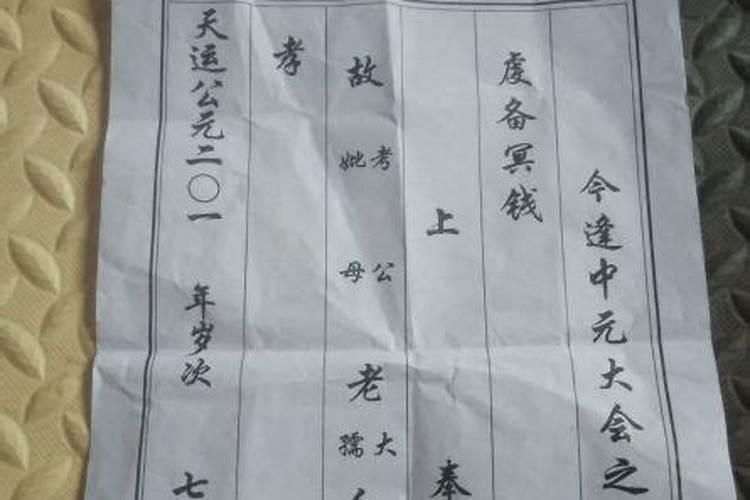 今逢中元大会之
虔备冥钱
上 奉
故 考妣 公母 老 大孺
孝
天运公元二〇一 年岁次 七